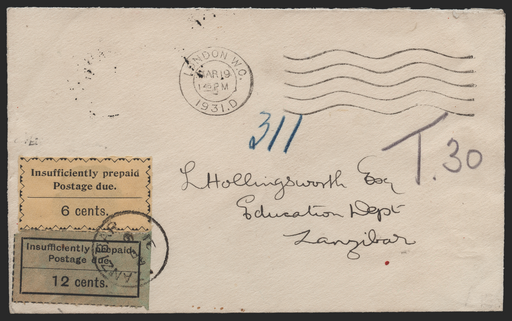 LONDON W.C.
MAR 19
1931.D
311
T.30
L Hollingsworth Esq
Education Dept
Zanzibar
Insufficiently prepaid
Postage due.
6 cents.
Insufficiently prepaid
Postage due.
12 cents.
ZANZIBAR